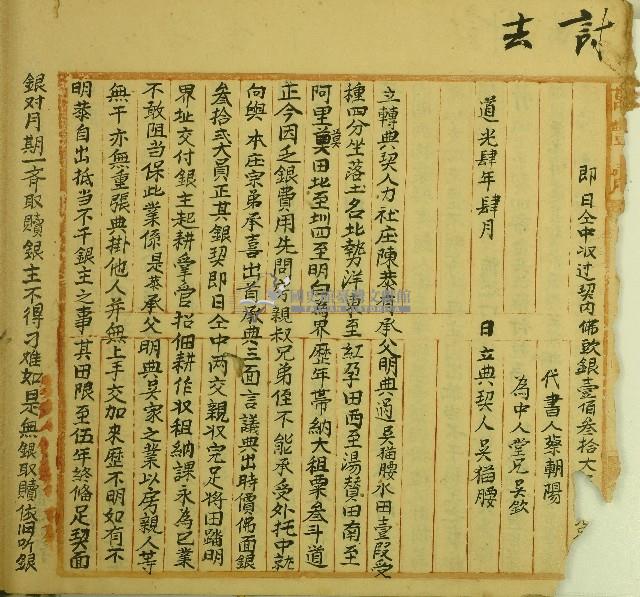 討 去
即日仝中収过契内佛欧銀壹佰叁拾大
代書人蔡朝陽
為中人堂兄吳欽
道光肆年肆月 日立典契人吳猫腰
立轉典契人力社庄陳恭有承父明典過吳猫腰水田壹段受
種四分坐落土名北勢洋東至紅孕田西至湯贊田南至
阿里莫田北至圳四至明白為界歷年帶納大租粟叁斗道
正今因乏銀費用先問房親叔兄弟侄不能承受外托中就
向與本庄宗弟承喜出首承典三面言議典出時價佛面銀
叁拾弍大員正其銀契即日仝中両交親収完足將田踏明
界址交付銀主起耕掌管招佃耕作収租納課永為己業
不敢阻当保此業係是恭承父明典吳家之業以房親人等
無干亦無重張典掛他人并無上手交加来歷不明如有不
明恭自出抵当不干銀主之事其田限至伍年終俻足契面
銀对月期一斉取贖銀主不得刁难如是無銀取贖依旧听銀